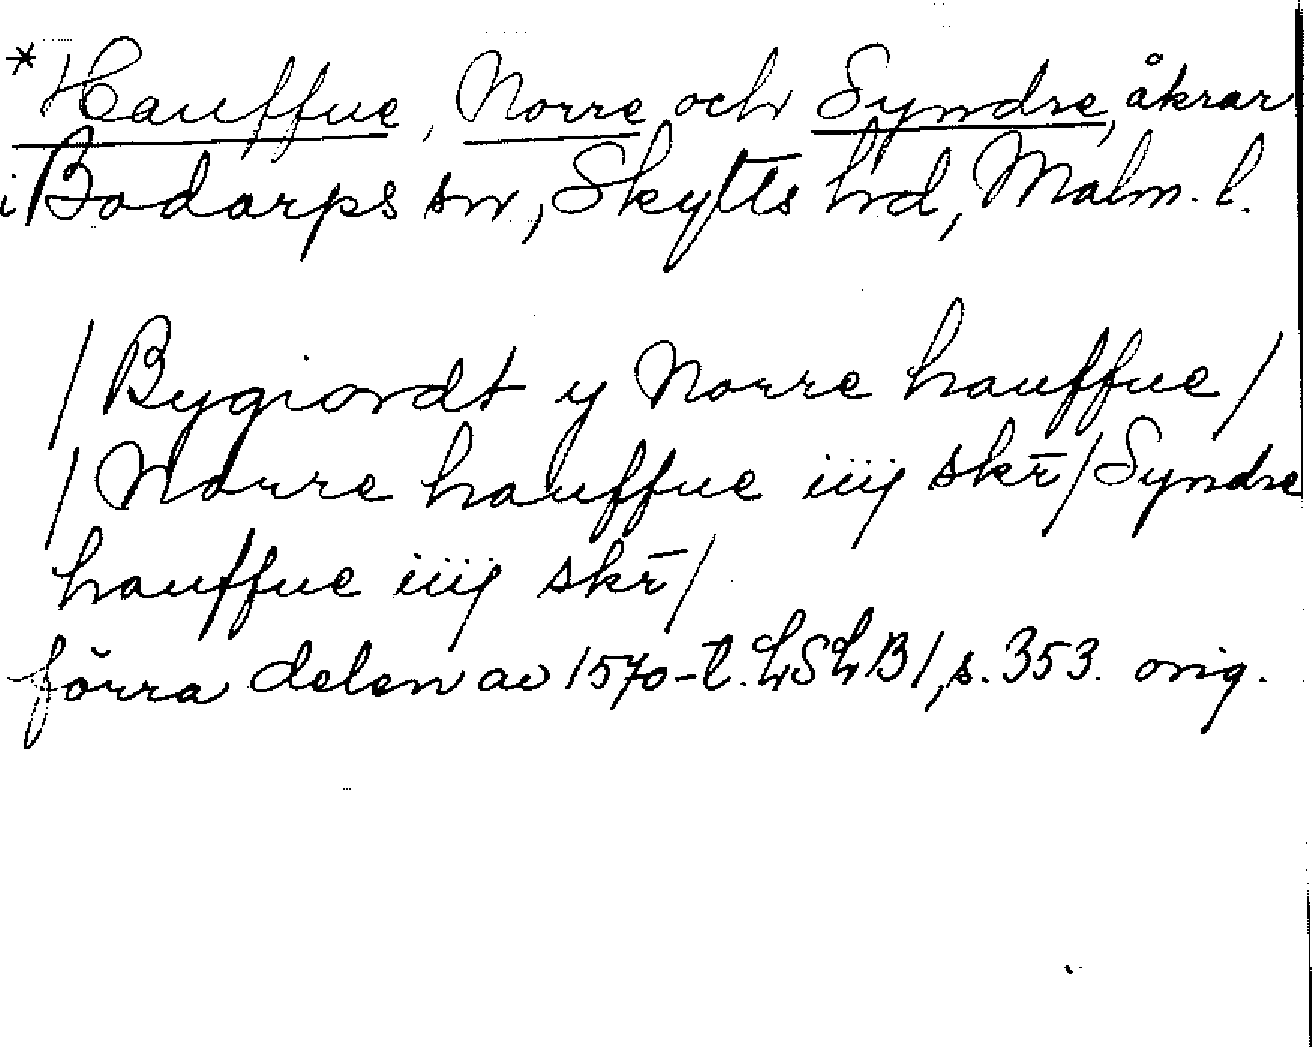 *Hauffue, Norre och Syndre, åkrar
i Bodarps sn, Skytts hd, Malm. l.
/Bygiordt y Norre hauffue/
/Norre hauffue iiij skr̄/Syndre
hauffue iiij skr̄/
förra delen av 1570-t. LSLB1, s. 353. orig.